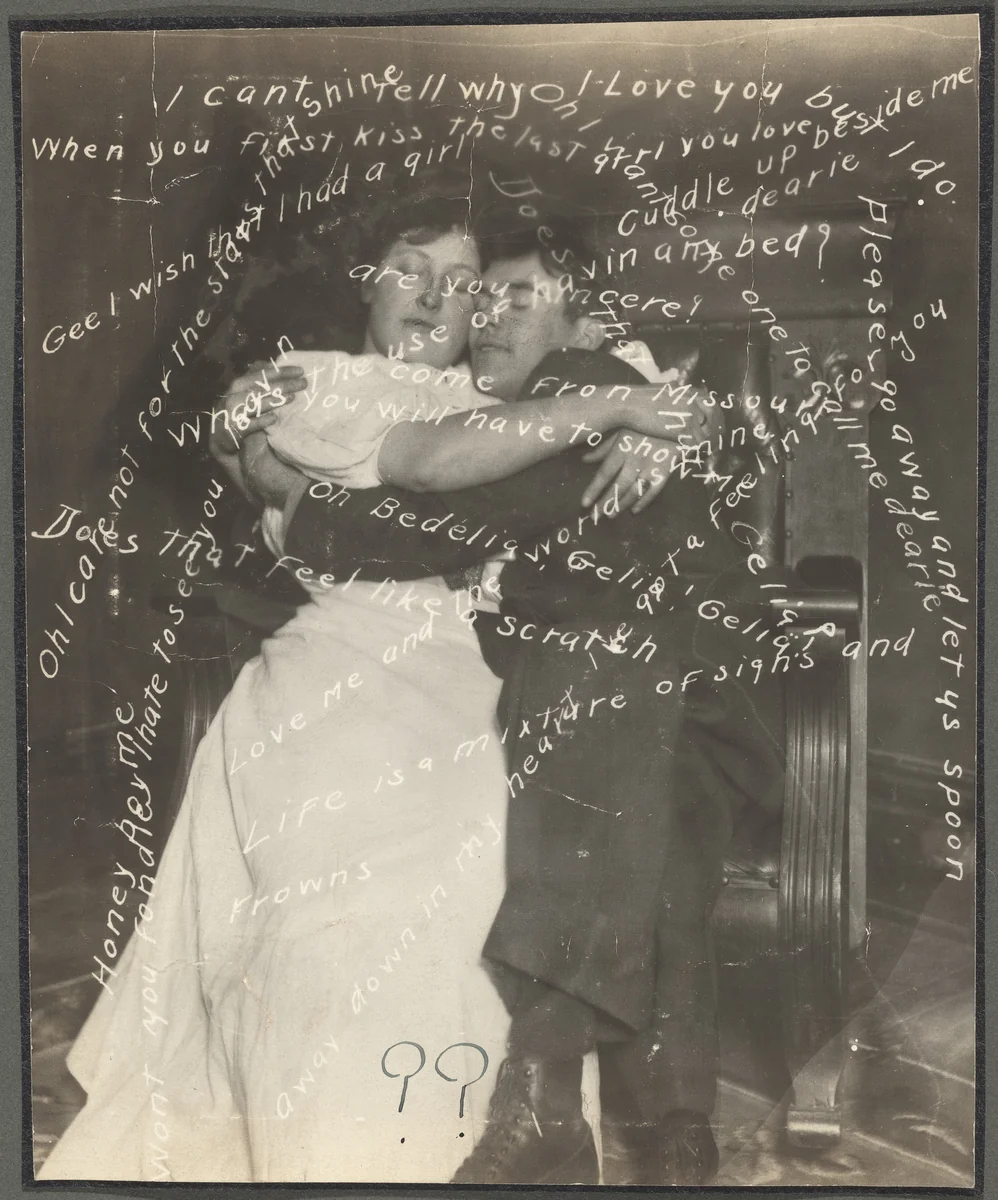 I cant tell why I Love you but I do.
When you first kiss the last girl you love
Oh!
Cuddle up beside me dearie
Gee I wish that I had a girl
Does havin any bed?
are you sincere?
Oh I care not for the stars that shine
I want some one to call me dearie
Please go away and let us spoon
Whats the use of
come from Missouri
you will have to show me
Oh Bedelia, Gelia! Gelia Gelia
Does that feel like a scratch
Love me and the world is mine
Life is a mixture of sighs and frowns
away down in my heart I got a feeling for you
Honey
wont you fondly
I hate to see you
??